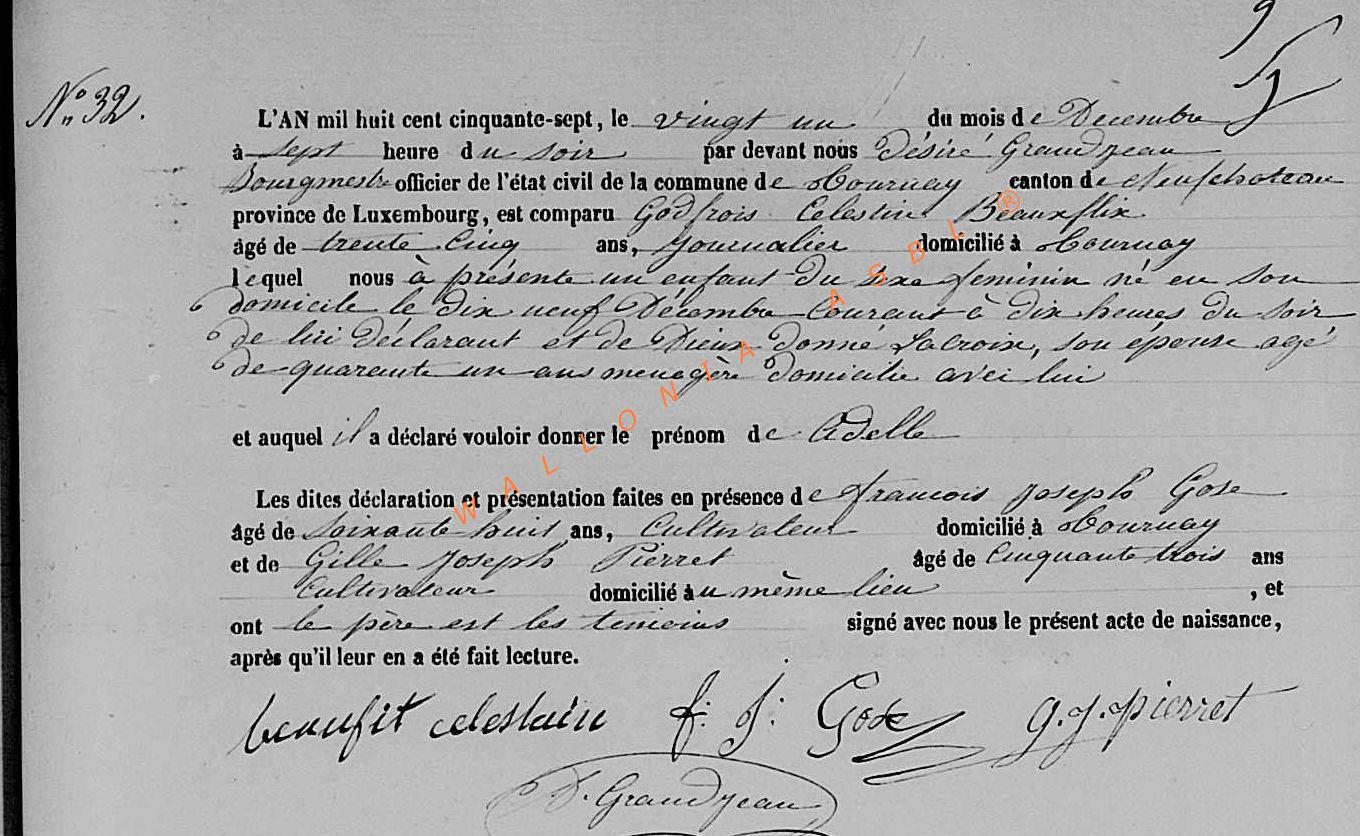 9
5
N° 32.
L'AN mil huit cent cinquante-sept, le vingt un du mois de Decembre
à sept heure du soir par devant nous Désiré Grandjean
Bourgmestre officier de l'état civil de la commune de Tournay canton de Neufchateau
province de Luxembourg, est comparu Godfrois Celestin Beauxflix
âgé de trente cinq ans, journalier domicilié à Tournay
lequel nous à présente un enfant du sexe feminin né en son
domicile le dix neuf Décembre Courant à dix heures du soir
de lui déclarant et de Dieux donné Lacroix, son épouse agé
de quarante un ans menagère domicilie avec lui
et auquel il a déclaré vouloir donner le prénom de Adelle
Les dites déclaration et présentation faites en présence de francois Joseph Gose
âgé de soixante huit ans, Cultivateur domicilié à Tournay
et de Gille Joseph Pierret âgé de Cinquante trois ans
Cultivateur domicilié au même lieu , et
ont le père est les temoins signé avec nous le présent acte de naissance,
après qu'il leur en a été fait lecture.
beaufit celestain f: J: Gose g.j.pierret
D. Grandjean
WALLONIA ASBL ®